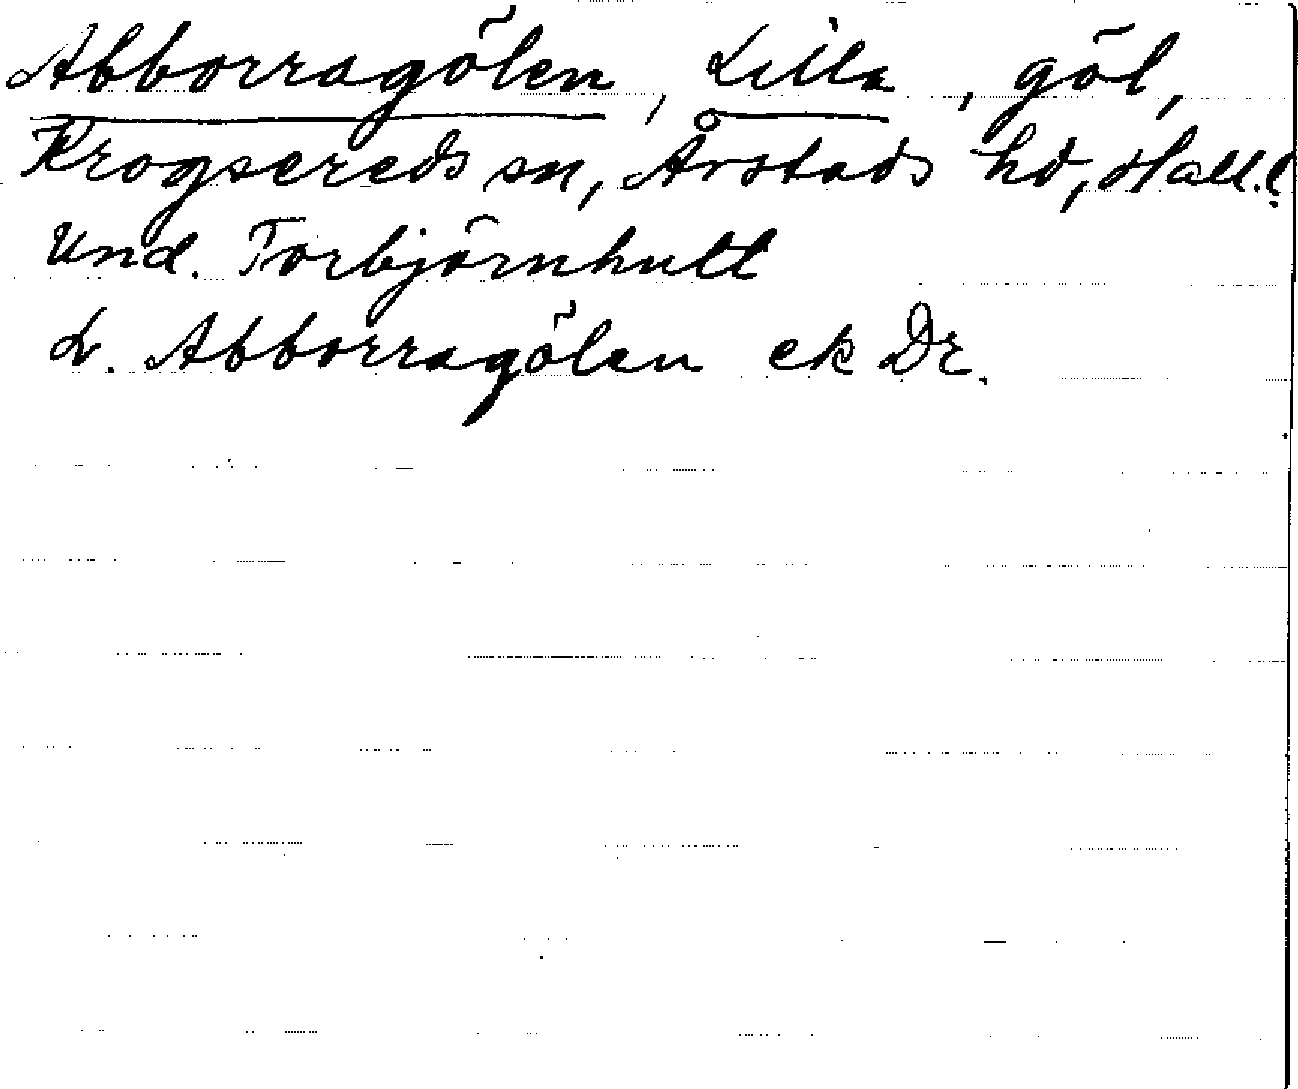 Abborragölen, Lilla, göl,
Krogsereds sn, Årstads hd, Hall. l.
Und. Torbjörnhult
L. Abborragölen ek Dr.